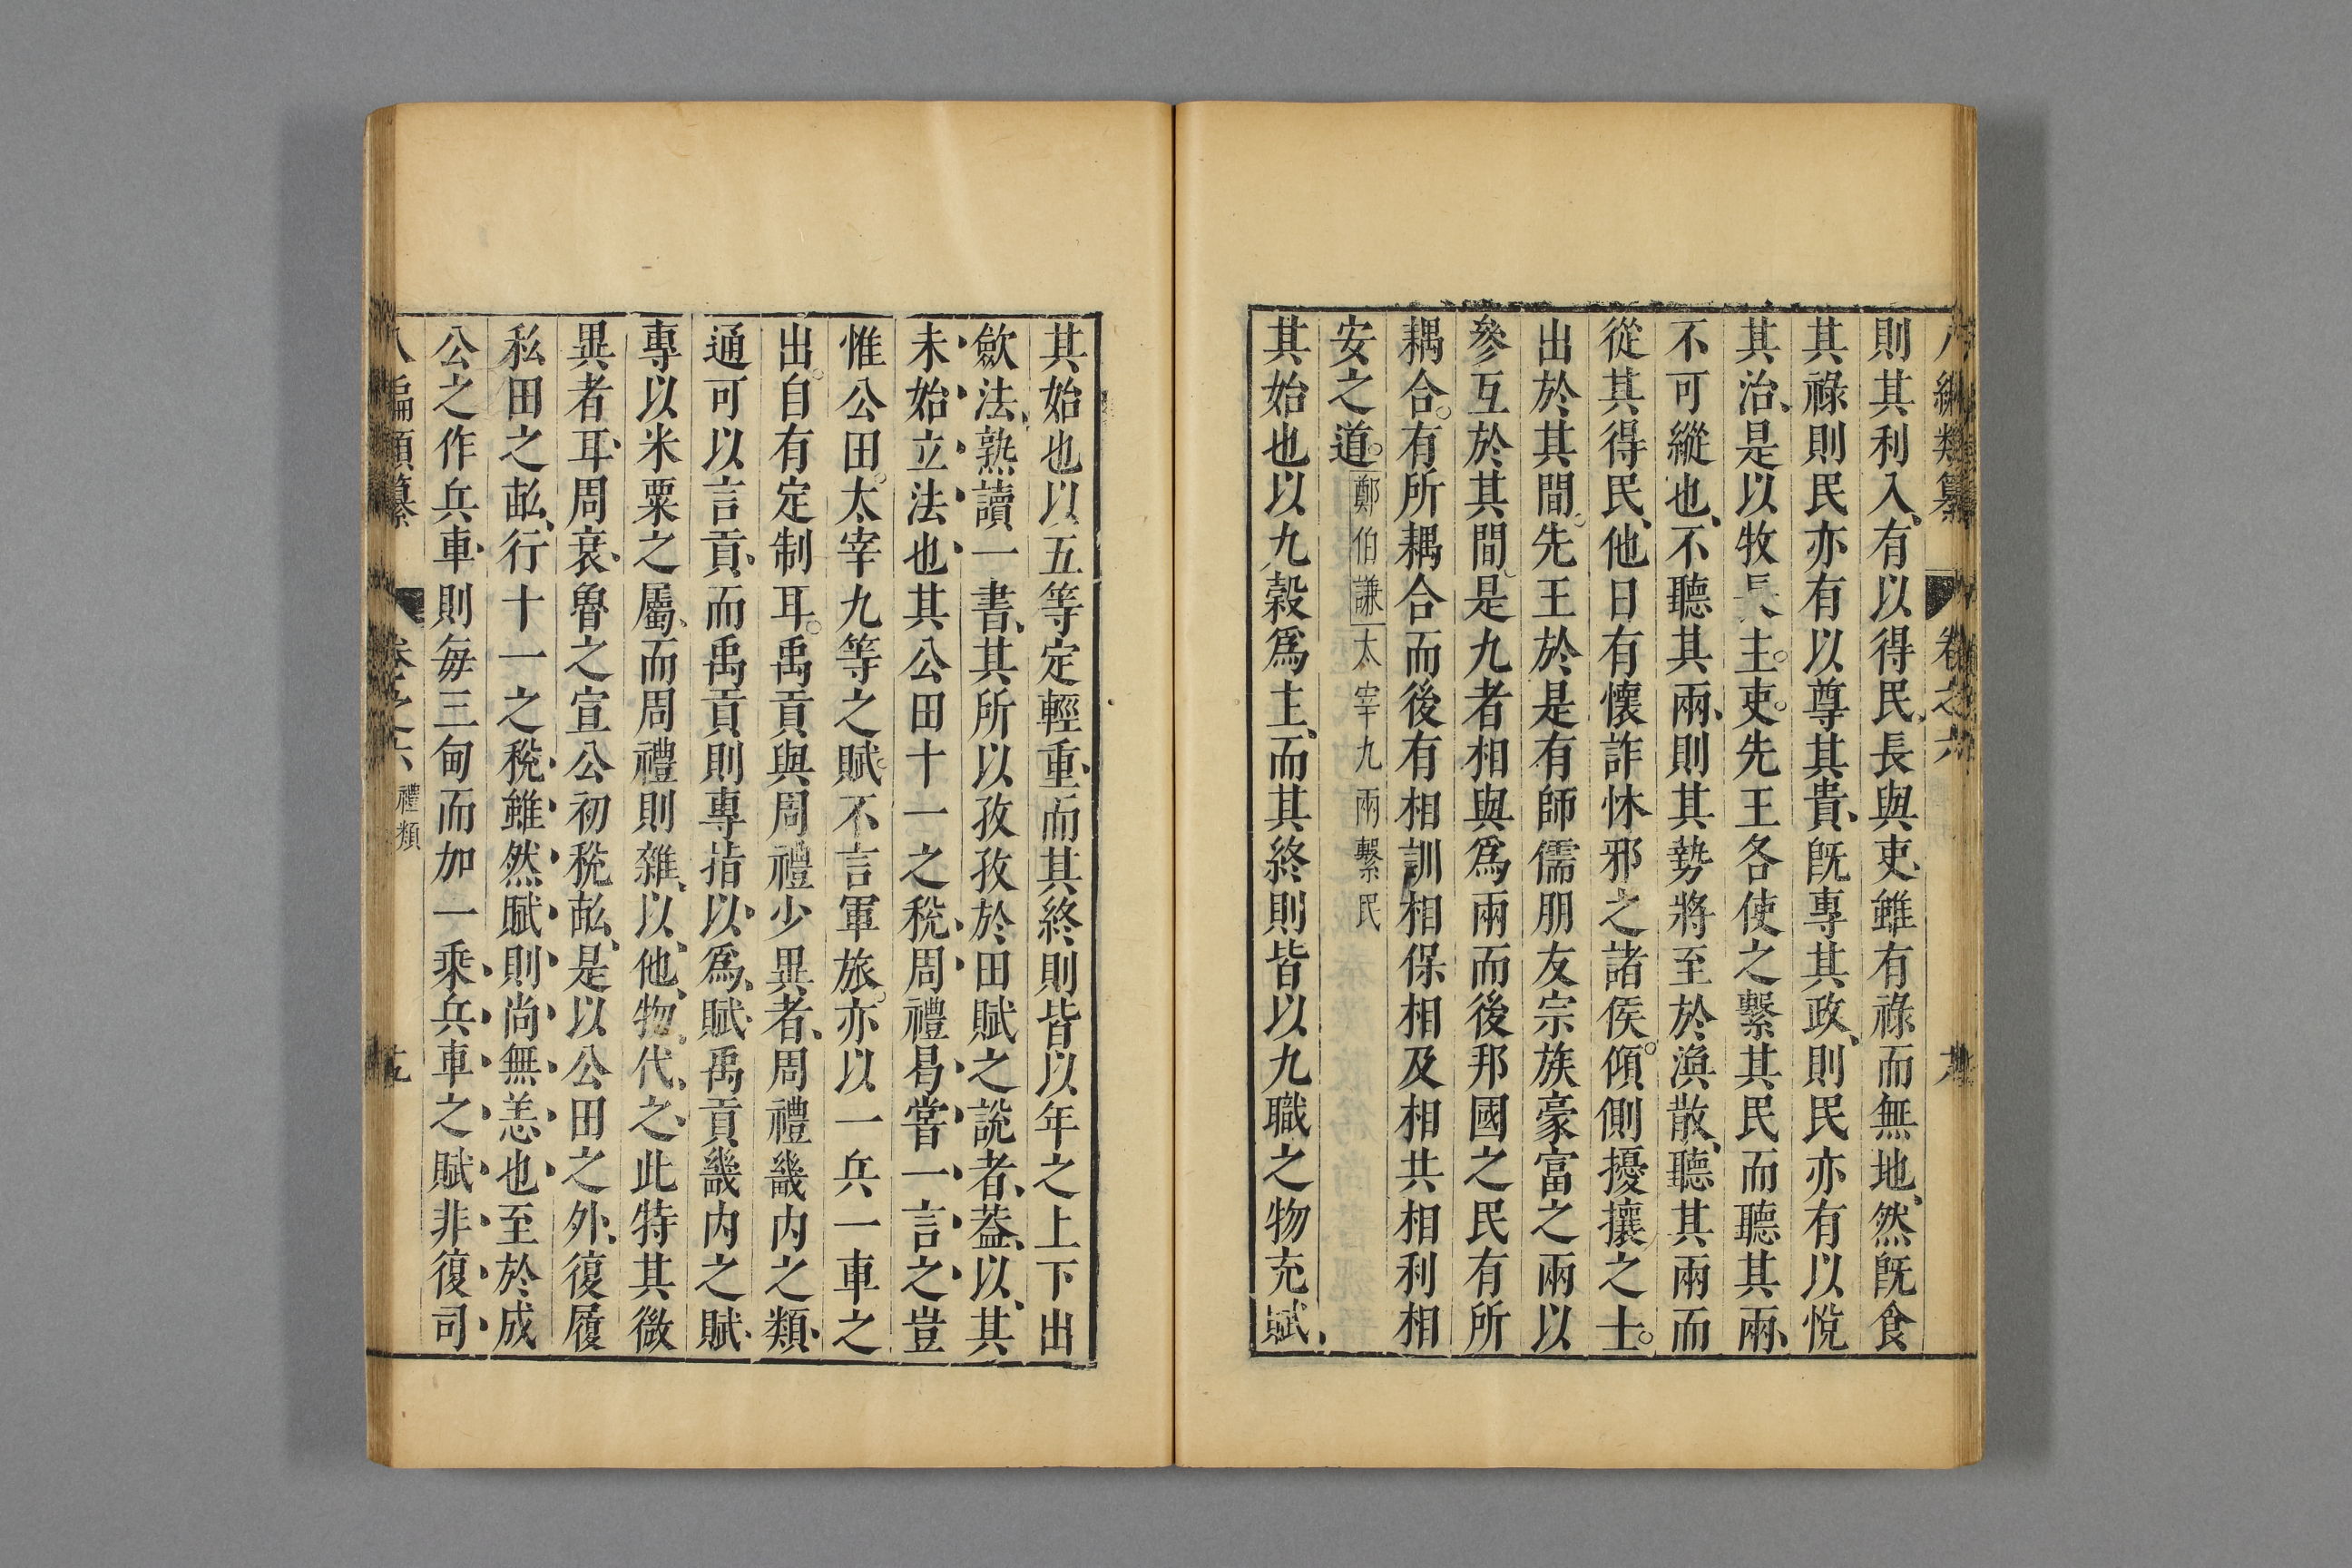 編類纂 卷之六
則其利入有以得民長與吏雖有祿而無地然旣食
其祿則民亦有以尊其貴旣專其政則民亦有以悅
其治是以牧長主吏先王各使之繫其民而聽其兩
不可縱也不聽其兩則其勢將至於渙散聽其兩而
從其得民他日有懷詐怵邪之諸侯傾側擾攘之士
出於其間先王於是有師儒朋友宗族豪富之兩以
參互於其間是九者相與爲兩而後邦國之民有所
耦合有所耦合而後有相訓相保相及相共相利相
安之道鄭伯謙太宰九兩繫民
其始也以九穀爲主而其終則皆以九職之物充賦
其始也以五等定輕重而其終則皆以年之上下出
歛法熟讀一書其所以孜孜於田賦之說者蓋以其
未始立法也其公田十一之稅周禮曷嘗一言之豈
惟公田太宰九等之賦不言軍旅亦以一兵一車之
出自有定制耳禹貢與周禮少異者周禮畿内之類
通可以言貢而禹貢則專指以爲賦禹貢畿内之賦
專以米粟之屬而周禮則雜以他物代之此特其微
異者耳周衰魯之宣公初稅畝是以公田之外復履
私田之畝行十一之稅雖然賦則尚無恙也至於成
公之作兵車則每三甸而加一乘兵車之賦非復司
八編類纂 卷之六 禮類